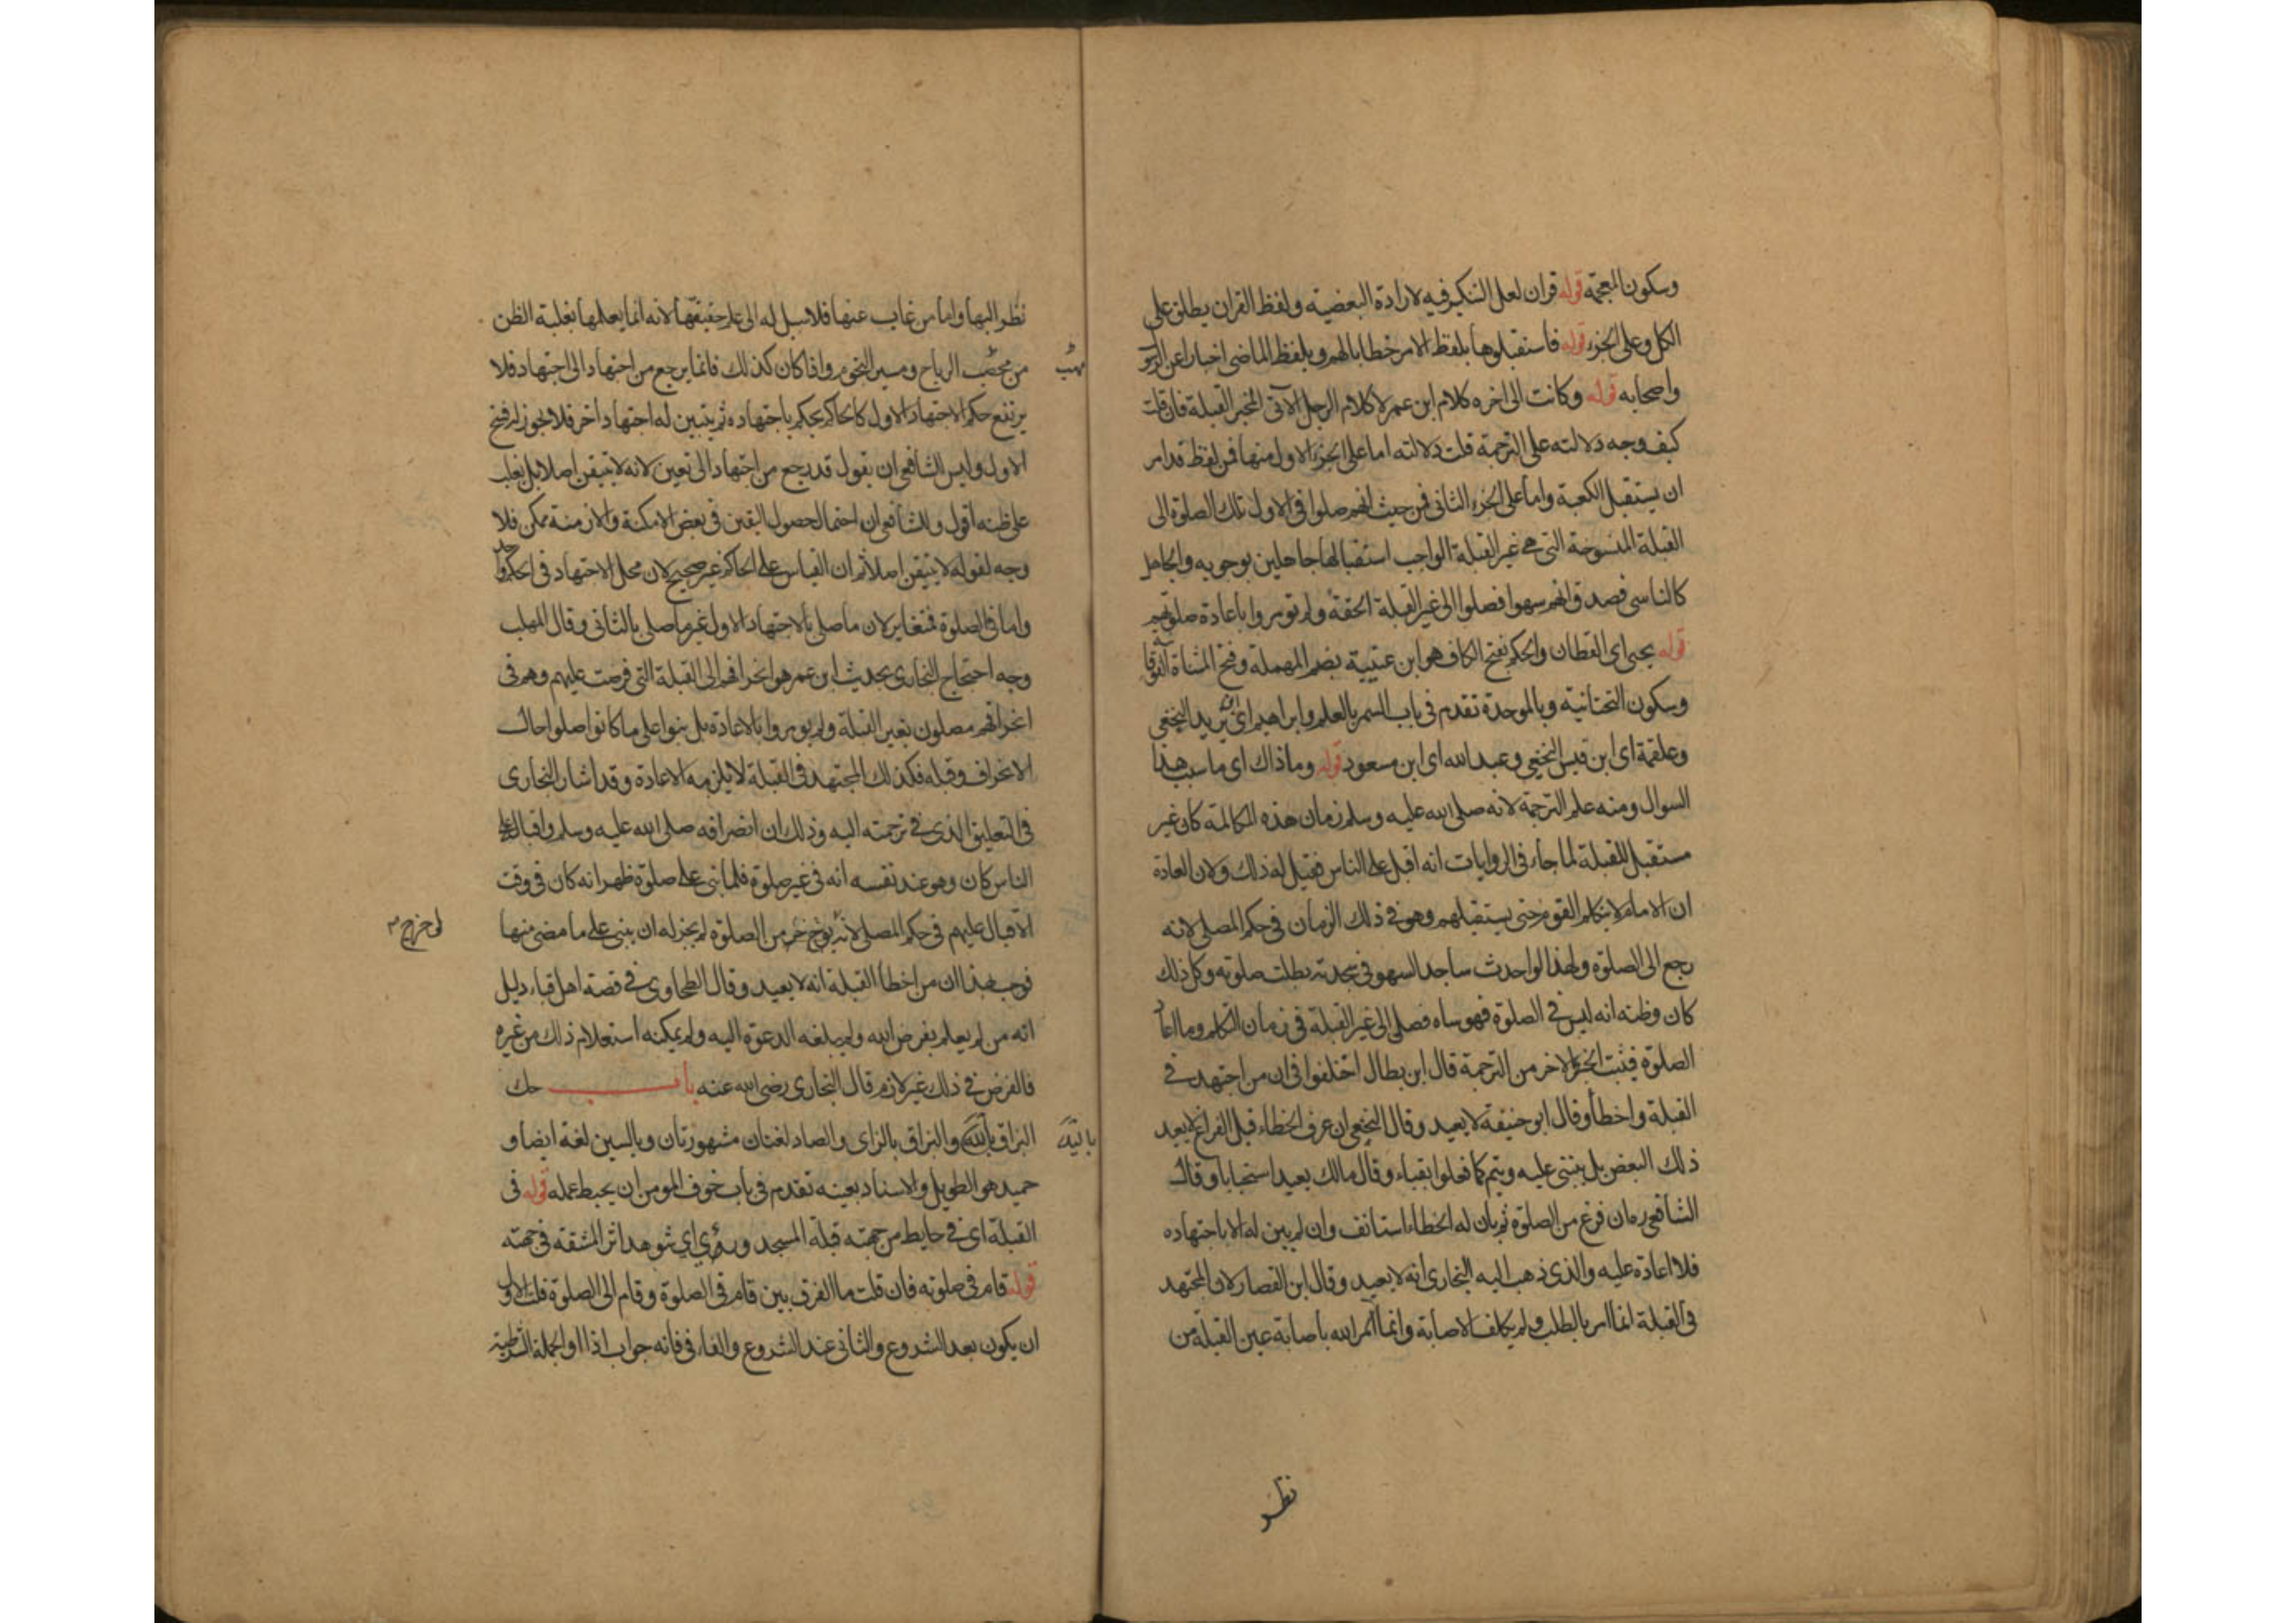 وسكون المعجمة قوله قران لعل التنكير فيه لارادة البعضية ولفظ القران يطلق على
الكل وعلى الجزء قوله فاستقبلوها بلفظ الامر خطابا لهم وبلفظ الماضى اخبارا عن
واصحابه قوله وكانت الى اخره كلام ابن عمر لا كلام الرجل الآتى المخبر القبلة فان قلت
كيف وجه دلالته على الترجمة قلت دلالته اما على الجزء الاول منها فمن لفظ قد امر
ان يستقبل الكعبة واما على الجزء الثانى فمن حيث انهم صلوا فى الاول تلك الصلوة الى
القبلة المنسوخة التى هى غير القبلة الواجب استقبالها جاهلين بوجوبه والجاهل
كالناسى فصدق انهم سهوا فصلوا الى غير القبلة الحقة ولم يومروا باعادة صلوتهم
قوله يحيى اى القطان والحكم بفتح الكاف هو ابن عتيبة بضم المهملة وفتح المثناة الفوقانية
وسكون التحتانية وبالموحدة تقدم فى باب السمر بالعلم وابراهيم اى ابن يزيد النخعى
وعلقمة اى ابن قيس النخعى وعبد الله اى ابن مسعود قوله وما ذاك اى ما سبب هذا
السوال ومنه علم الترجمة لانه صلى الله عليه وسلم زمان هذه المكالمة كان غير
مستقبل للقبلة لما جاء فى الروايات انه اقبل على الناس فقيل له ذلك ولان العادة
ان الامام لا يتكلم القوم حتى يستقبلهم وهو فى ذلك الزمان فى حكم المصلى لانه
رجع الى الصلوة ولهذا لو احدث ساجد السهو فى سجدته بطلت صلوته وكل ذلك
كان وظنه انه ليس فى الصلوة فهو ساه فصلى الى غير القبلة فى زمان التكلم وما اعاد
الصلوة فيثبت الجزء الاخر من الترجمة قال ابن بطال اختلفوا فى ان من اجتهد فى
القبلة واخطأ وقال ابو حنيفة لا يعيد وقال النخعى ان عرف الخطاء قبل الفراغ لا يعيد
ذلك البعض بل يبنى عليه ويتم كما فعلوا بقباء وقال مالك يعيد استحبابا وقال
الشافعى رحمه ان فرغ من الصلوة ثم بان له الخطاء استانف وان لم يبين له الا باجتهاده
فلا اعادة عليه والذى ذهب اليه البخارى انه لا يعيد وقال ابن القصار لان المجتهد
فى القبلة انما امر بالطلب ولم يكلف الاصابة وانما امر الله باصابة عين القبلة من
نظر
نظر اليها واما من غاب عنها فلا سبيل له الى علم حقيقتها لانه انما يعلمها بغلبة الظن
من مهب الرياح ومسير النجوم واذا كان كذلك فانما يرجع من اجتهاد الى اجتهاد فلا
مهب
يرتفع حكم الاجتهاد الاول كالحاكم يحكم باجتهاده ثم يتبين له اجتهاد اخر فلا يجوز له فسخ
الاول وليس للشافعى ان يقول قد رجع من اجتهاد الى تعين لانه لا يتيقن اصلا بل يغلب
على ظنه اقول وللشافعى ان احتمال حصول اليقين فى بعض الامكنة والازمنة ممكن فلا
وجه لقوله لا يتيقن اصلا ثم ان القياس على الحاكم غير صحيح لان محل الاجتهاد فى الحكم واحد
واما فى الصلوة فمتغاير لان ما صلى بالاجتهاد الاول غير ما صلى بالثانى وقال المهلب
وجه احتجاج البخارى بحديث ابن عمر هو انحرافهم الى القبلة التى فرضت عليهم وهم فى
انحرافهم مصلون بغير القبلة ولم يومروا بالاعادة بل بنوا على ما كانوا صلوا حال
الانحراف وقبله فكذلك المجتهد فى القبلة لا يلزمه الاعادة وقد اشار البخارى
فى التعليق الذى فى ترجمته اليه وذلك ان انصرافه صلى الله عليه وسلم واقباله على
الناس كان وهو عند نفسه انه فى غير صلوة فلما بنى على صلوة ظهر انه كان فى وقت
الاقبال عليهم فى حكم المصلى لانه لو خرج من الصلوة لم يجز له ان يبنى على ما مضى منها
لو خرج
فوجب بهذا ان من اخطأ القبلة انه لا يعيد وقال الطحاوى فى قصة اهل قباء دليل
انه من لم يعلم بفرض الله ولم يبلغه الدعوة اليه ولم يمكنه استعلام ذلك من غيره
فالفرض فى ذلك غير لازم قال البخارى رضى الله عنه باب حك
البزاق باليد والبزاق بالزاى والصاد لغتان مشهورتان وبالسين لغة ايضا و
باليد
حميد هو الطويل والاسناد بعينه تقدم فى باب خوف المومن ان يحبط عمله قوله فى
القبلة اى فى حايط من جهته قبلة المسجد ورؤى اى شوهد اثر المشقة فى جهته
قوله قام فى صلوته فان قلت ما الفرق بين قام فى الصلوة وقام الى الصلوة قلت الاول
ان يكون بعد الشروع والثانى عند الشروع والفاء فى فانه جواب اذا او الجملة الشرطية